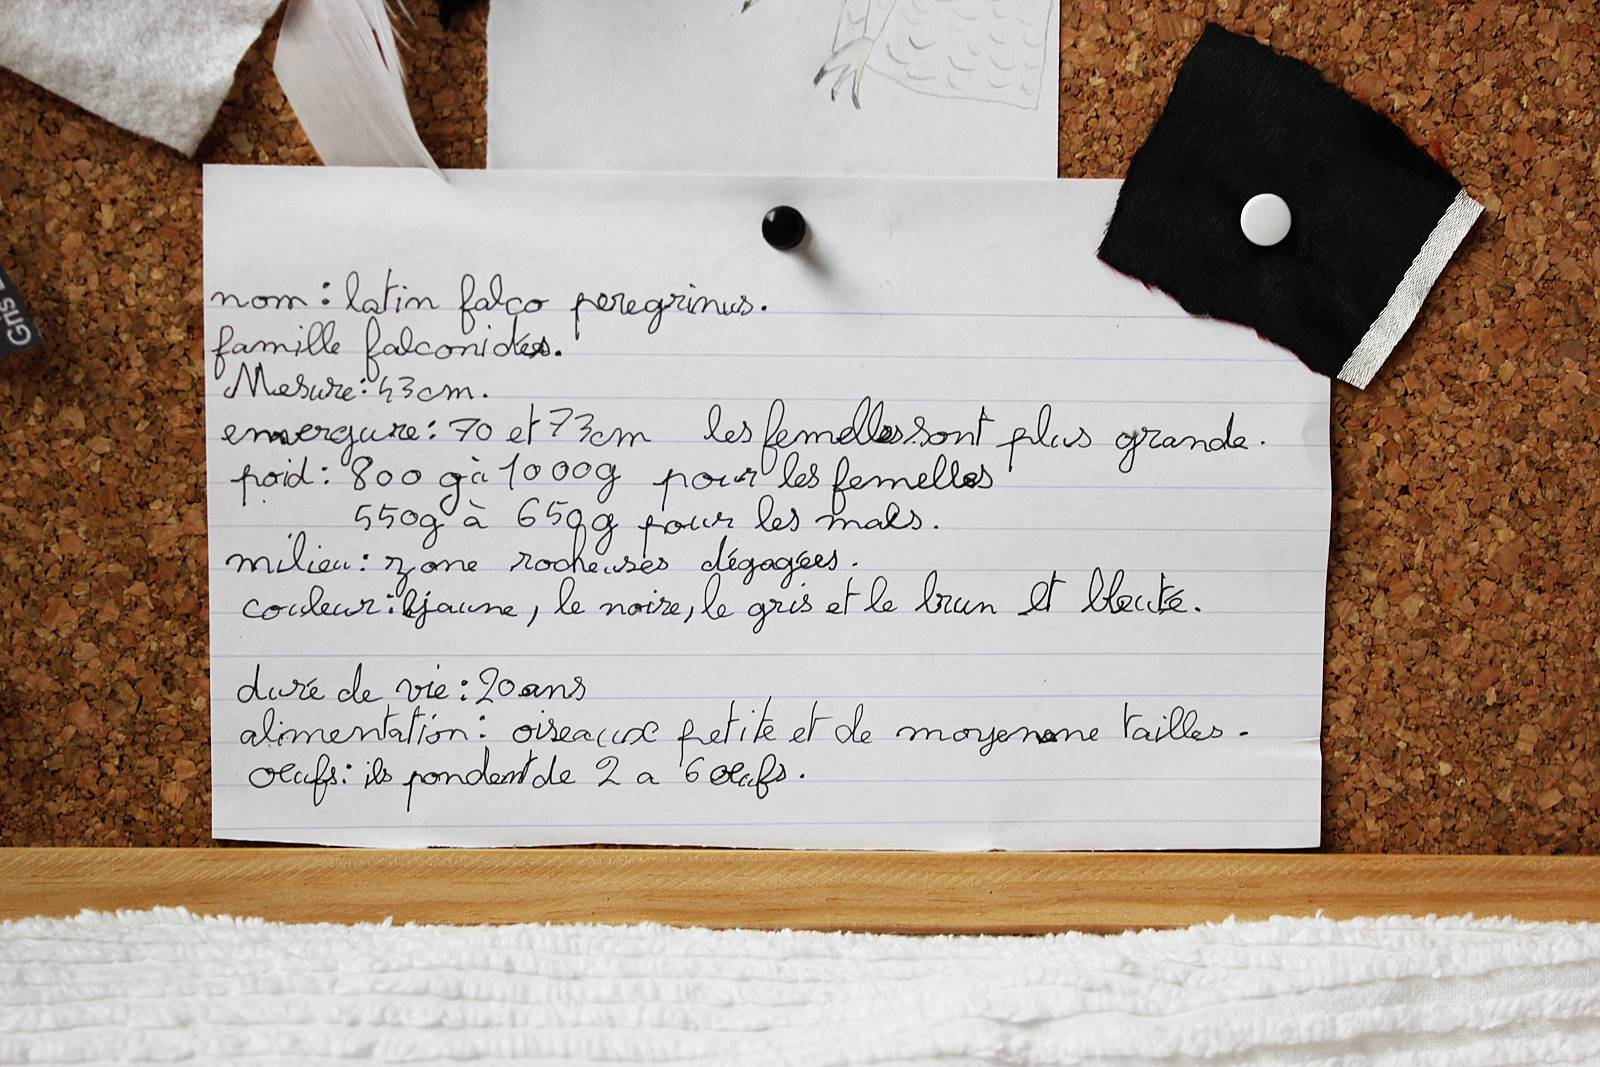 nom : latin falco peregrinus.
famille falconidés.
Mesure : 43cm.
envergure : 70 et 73cm les femelles sont plus grande.
poid : 800 g à 1000g pour les femelles
550g à 650g pour les mals.
milieu : zone rocheuses dégagées.
couleur : le jaune, le noire, le gris et le brun et bleuté.
duré de vie : 20 ans
alimentation : oiseaux petite et de moyenne tailles.
oeufs : ils pondent de 2 a 6 oeufs.
Gris